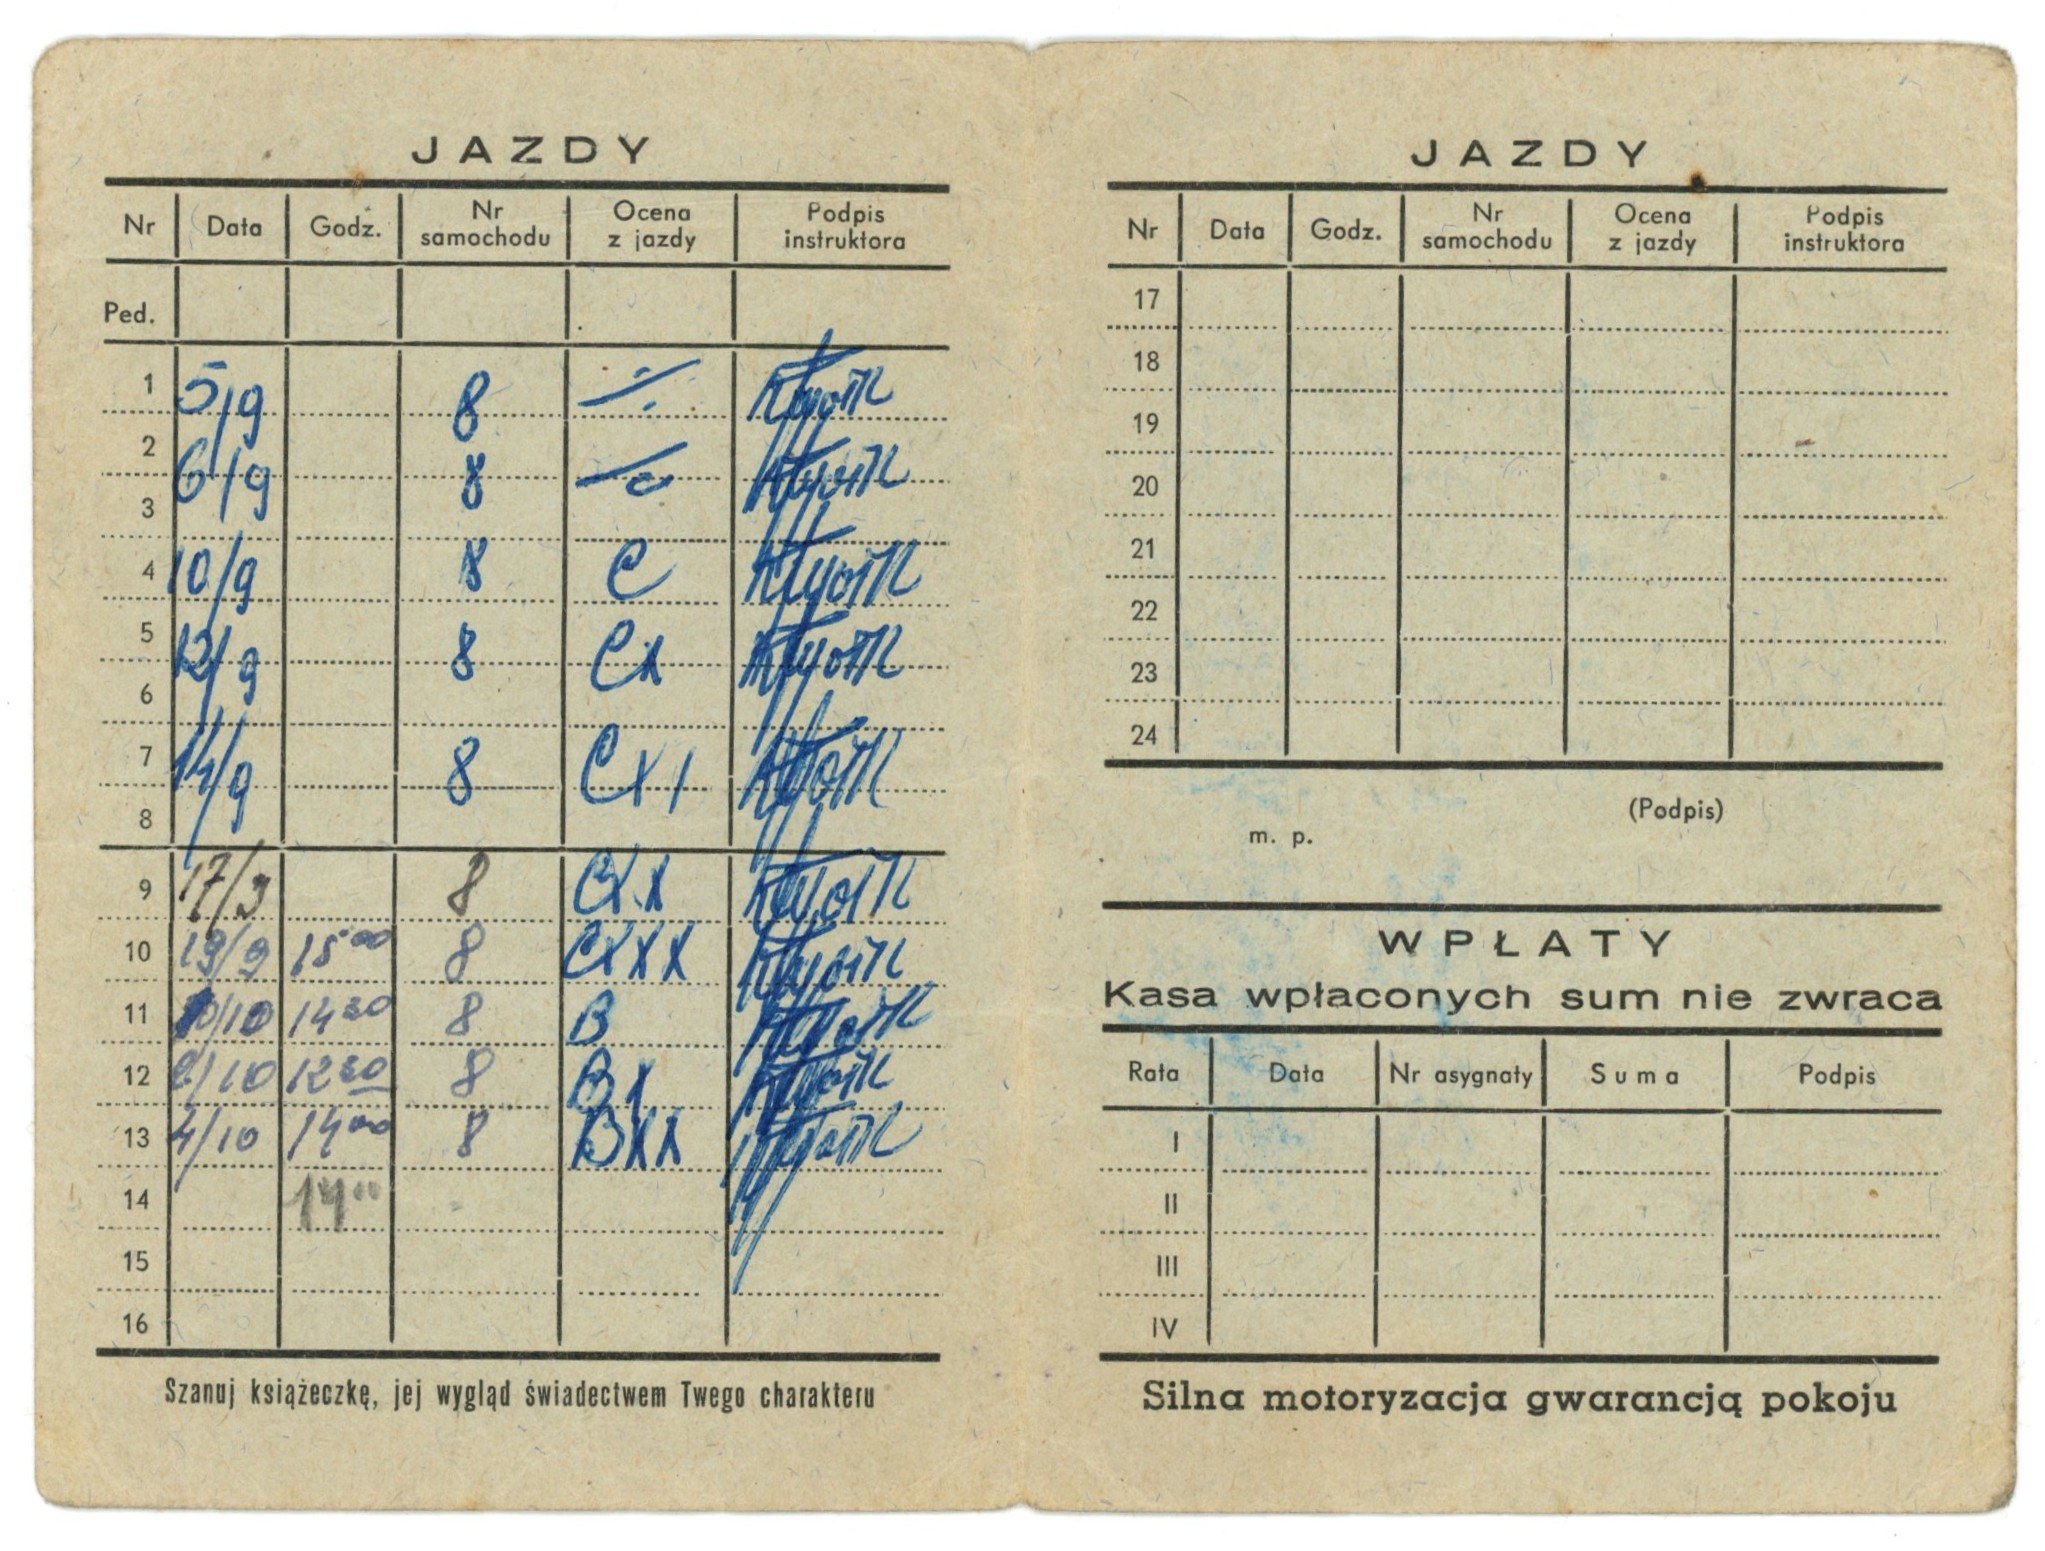 JAZDY
Nr Data Godz. Nr samochodu Ocena z jazdy Podpis instruktora
Ped.
1 5/9 8
2 6/9 8
3
4 10/9 8 C
5 12/9 8 Cx
6
7 14/9 8 Cx
8
9 17/9 8 Cxx
10 19/9 15 00 8 CXXX
11 /10 14 30 8 B
12 2/10 12 30 8 BX
13 4/10 14 00 8 BXX
14 14
15
16
Szanuj książeczkę, jej wygląd świadectwem Twego charakteru
JAZDY
Nr Data Godz. Nr samochodu Ocena z jazdy Podpis instruktora
17
18
19
20
21
22
23
24
(Podpis)
m. p.
WPŁATY
Kasa wpłaconych sum nie zwraca
Rata Data Nr asygnaty Suma Podpis
I
II
III
IV
Silna motoryzacja gwarancją pokoju